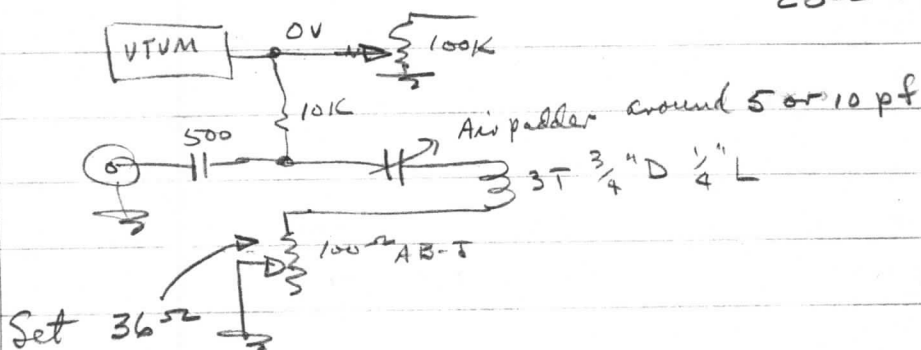 VTVM
0V
100K
10K
Air padder around 5 or 10 pf
500
3T 3/4"D 1/4"L
100Ω AB-J
Set 36Ω